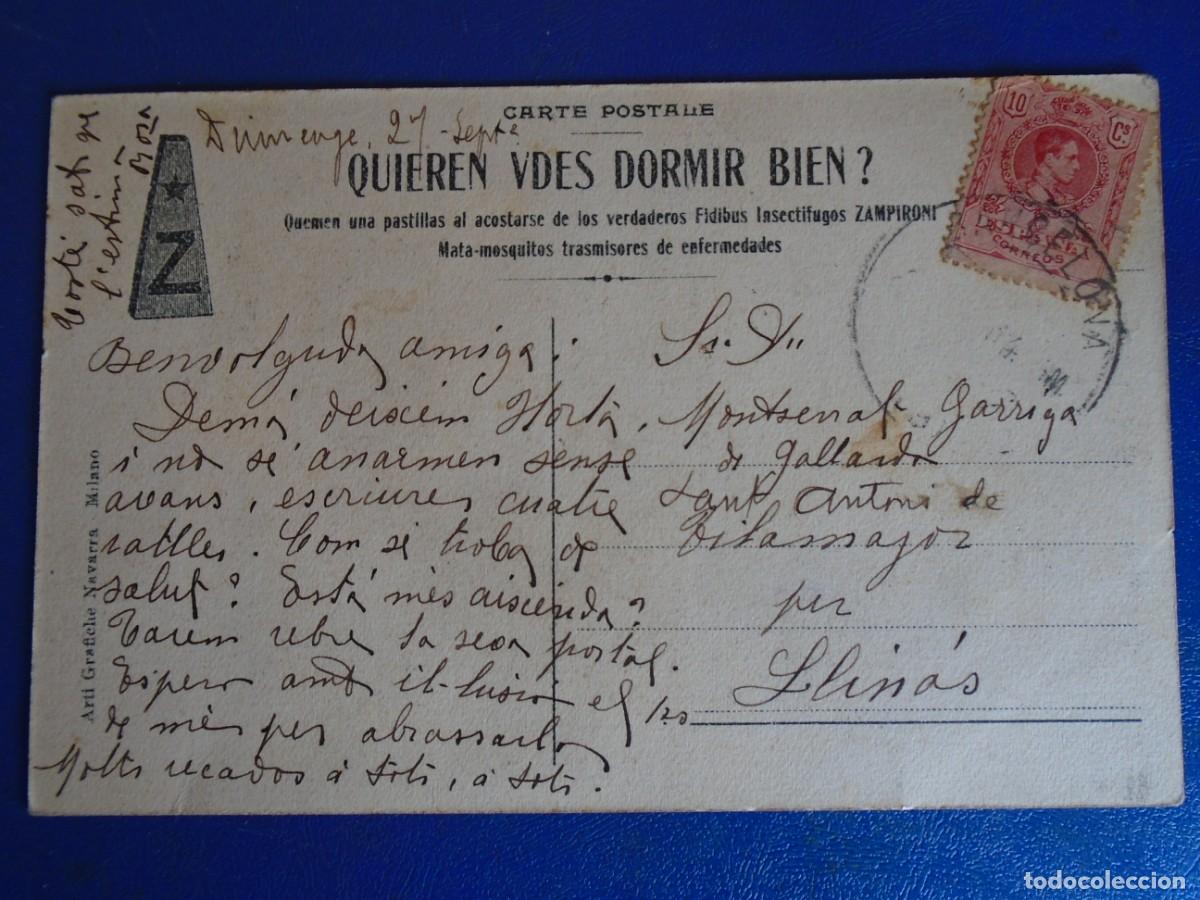 CARTE POSTALE
Diumenge, 27-Sept.
QUIEREN VDES DORMIR BIEN?
Quemen una pastillas al acostarse de los verdaderos Fidibus Insectifugos ZAMPIRONI
Mata-mosquitos trasmisores de enfermedades
Z
10 Cs.
CORREOS
BARCELONA
Benvolguda amiga:
Demá deixém Horta,
i no sé anarmen sense
avans, escriures cuatre
ratlles. Com se troba de
salut? Está més aixerida?
Varem rebre la seva postal.
Espero amb il-lusió el 1ro
de més per abrassarla
Molts recados á tots, á tots.
sap que
l'estima
Roza
Sra. Da.
Montserrat Garriga
de Gallardo
Sant Antoni de
Vilamajor
per
Llinás
Arti Grafiche Navarra Milano
todocoleccion